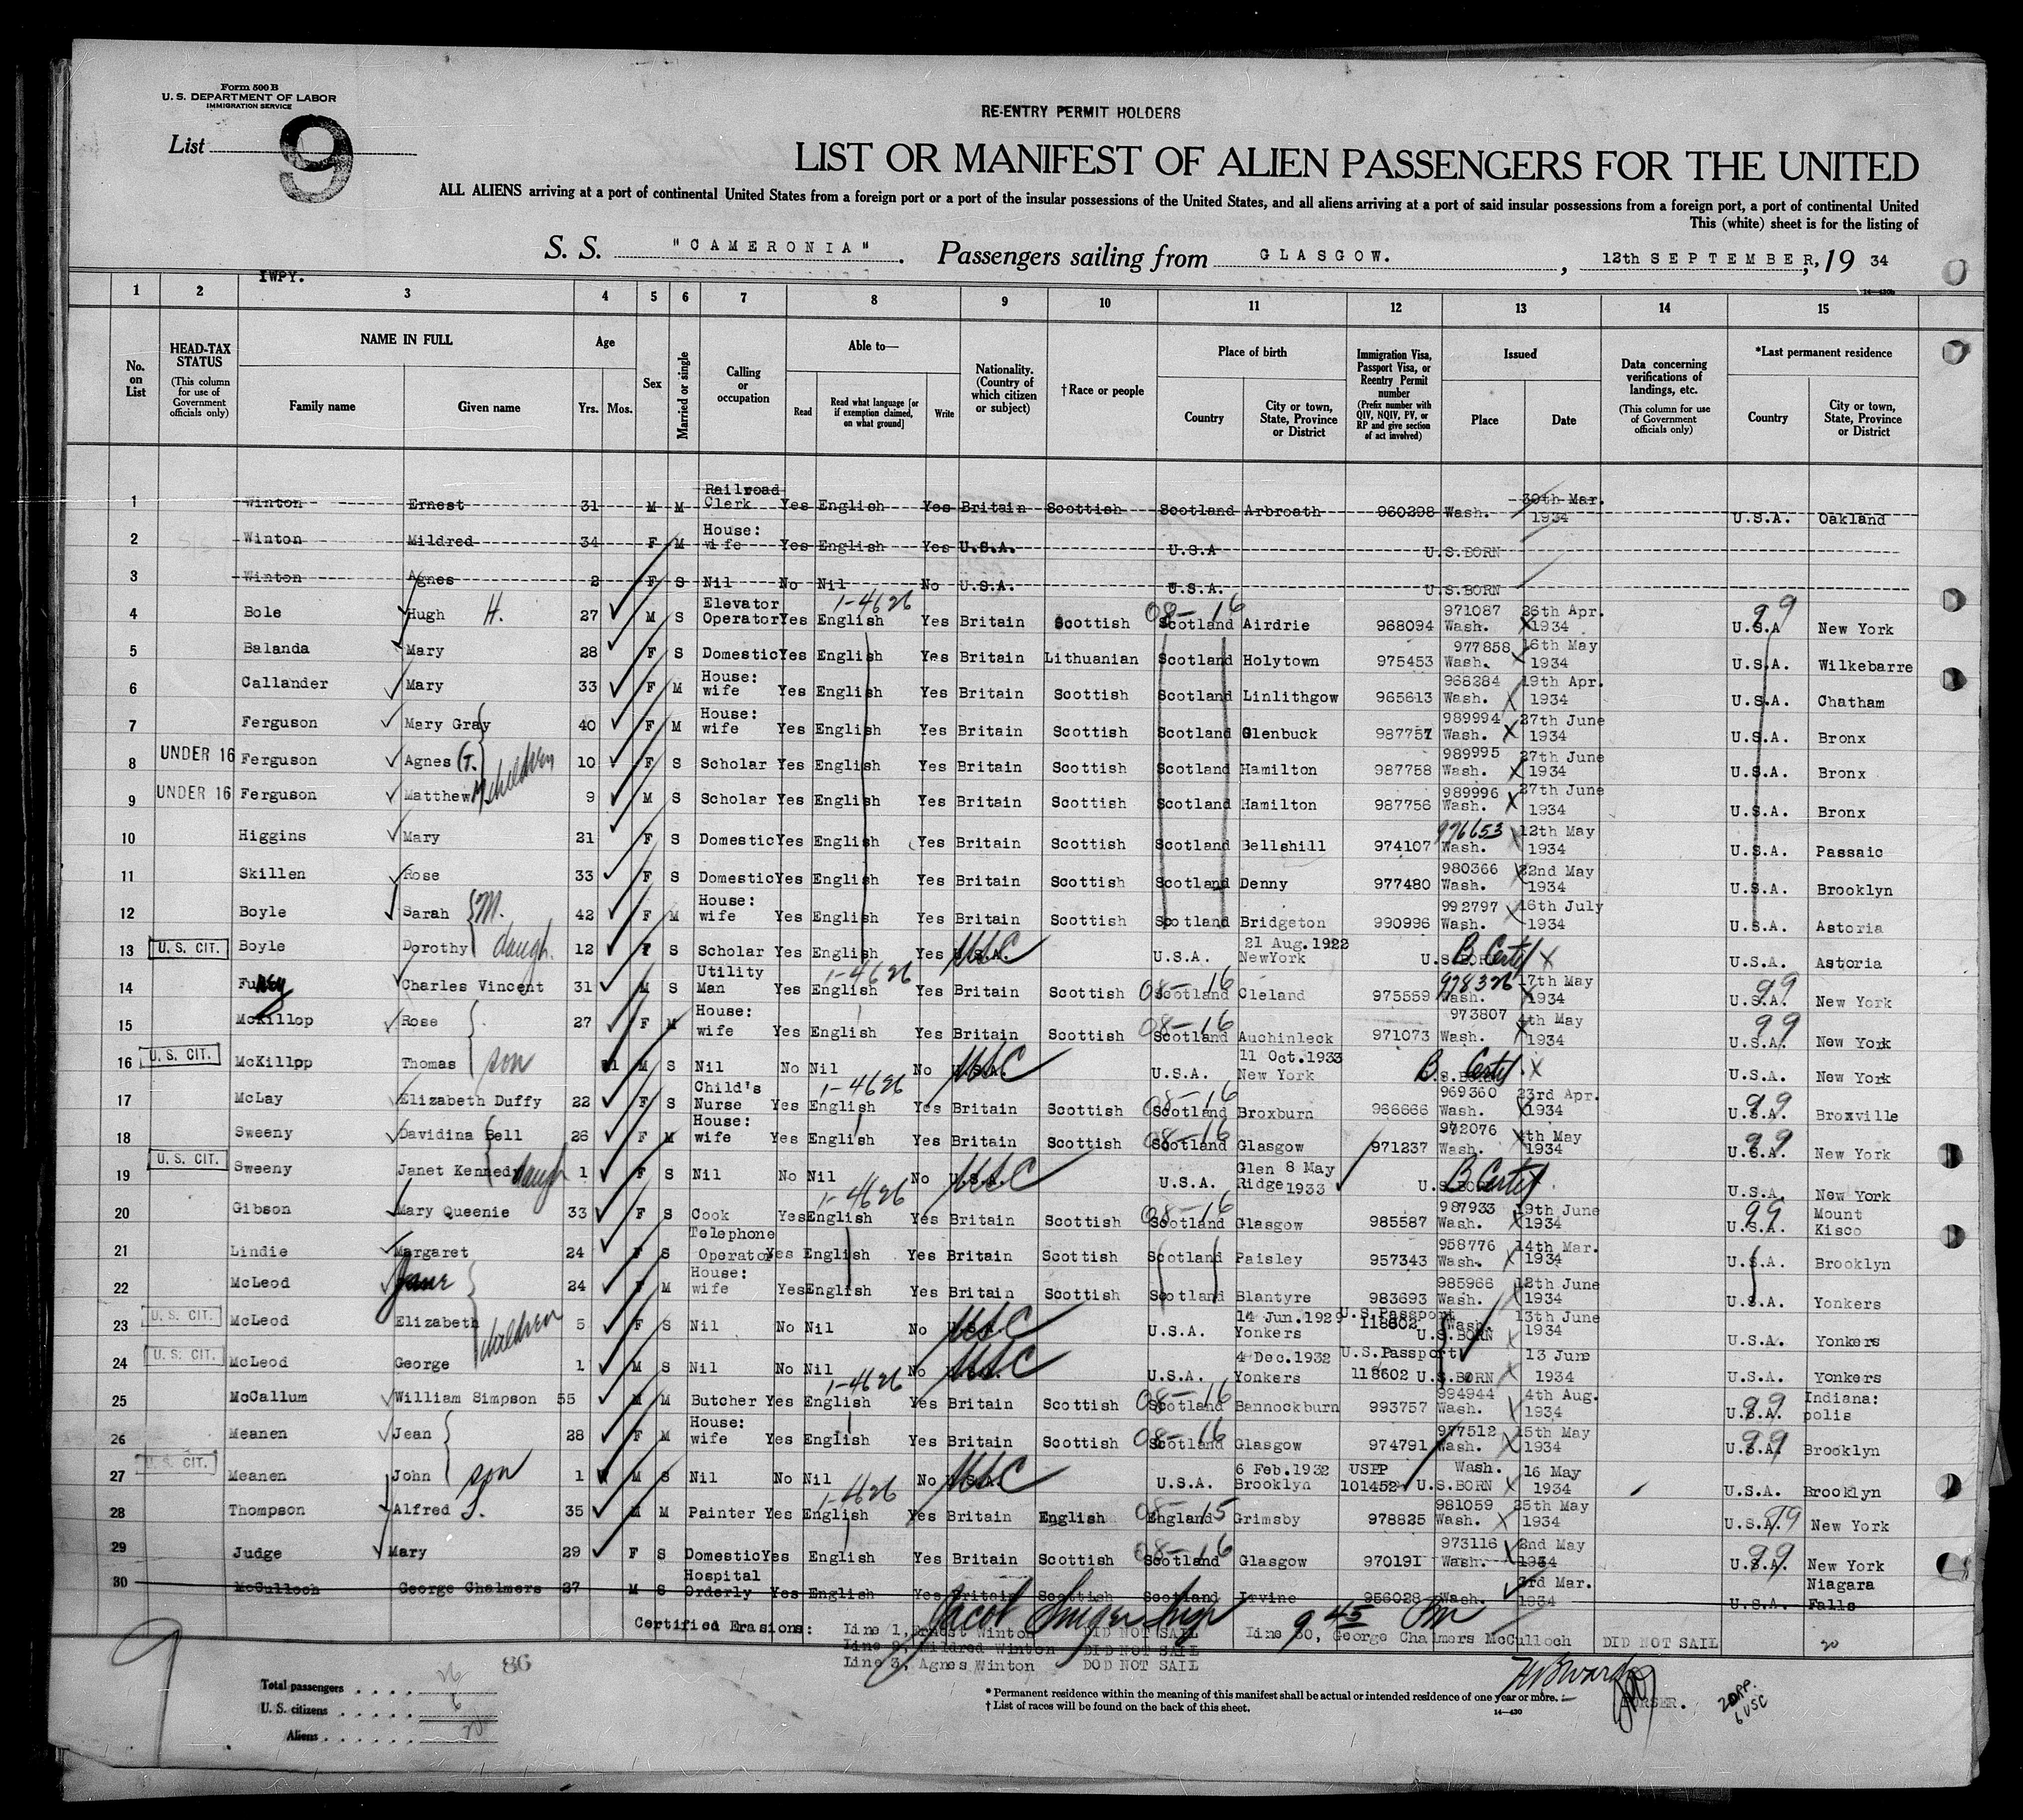 Form 500 B
U. S. DEPARTMENT OF LABOR
IMMIGRATION SERVICE
List 9
RE-ENTRY PERMIT HOLDERS
LIST OR MANIFEST OF ALIEN PASSENGERS FOR THE UNITED
ALL ALIENS arriving at a port of continental United States from a foreign port or a port of the insular possessions of the United States, and all aliens arriving at a port of said insular possessions from a foreign port, a port of continental United
This (white) sheet is for the listing of
S. S. "CAMERONIA". Passengers sailing from GLASGOW., 12th SEPTEMBER, 19 34
IWPY.
14—430b
1 2 3 4 5 6 7 8 9 10 11 12 13 14 15
No. on List
HEAD-TAX STATUS (This column for use of Government officials only)
NAME IN FULL
Family name Given name
Age
Yrs. Mos.
Sex
Married or single
Calling or occupation
Able to—
Read Read what language [or if exemption claimed, on what ground] Write
Nationality. (Country of which citizen or subject)
†Race or people
Place of birth
Country City or town, State, Province or District
Immigration Visa, Passport Visa, or Reentry Permit number (Prefix number with QIV, NQIV, PV, or RP and give section of act involved)
Issued
Place Date
Data concerning verifications of landings, etc. (This column for use of Government officials only)
*Last permanent residence
Country City or town, State, Province or District
1 Winton Ernest 31 M M Railroad Clerk Yes English Yes Britain Scottish Scotland Arbroath 960298 Wash. 30th Mar. 1934 U.S.A. Oakland
2 Winton Mildred 34 F M House: wife Yes English Yes U.S.A. U.S.A U.S.BORN
3 Winton Agnes 2 F S Nil No Nil No U.S.A. U.S.A. U.S.BORN
4 Bole Hugh H. 27 M S Elevator Operator Yes English 1-4626 Yes Britain Scottish 08-16 Scotland Airdrie 968094 971087 Wash. 26th Apr. 1934 99 U.S.A New York
5 Balanda Mary 28 F S Domestic Yes English Yes Britain Lithuanian Scotland Holytown 975453 977858 Wash. 16th May 1934 U.S.A. Wilkebarre
6 Callander Mary 33 F M House: wife Yes English Yes Britain Scottish Scotland Linlithgow 965613 968284 Wash. 19th Apr. 1934 U.S.A. Chatham
7 Ferguson Mary Gray 40 F M House: wife Yes English Yes Britain Scottish Scotland Glenbuck 987757 989994 Wash. 27th June 1934 U.S.A. Bronx
8 UNDER 16 Ferguson Agnes (T. 10 F S Scholar Yes English Yes Britain Scottish Scotland Hamilton 987758 989995 Wash. 27th June 1934 U.S.A. Bronx
children
9 UNDER 16 Ferguson Matthew 9 M S Scholar Yes English Yes Britain Scottish Scotland Hamilton 987756 989996 Wash. 27th June 1934 U.S.A. Bronx
10 Higgins Mary 21 F S Domestic Yes English Yes Britain Scottish Scotland Bellshill 974107 976653 Wash. 12th May 1934 U.S.A. Passaic
11 Skillen Rose 33 F S Domestic Yes English Yes Britain Scottish Scotland Denny 977480 980366 Wash. 22nd May 1934 U.S.A. Brooklyn
12 Boyle Sarah M. 42 F M House: wife Yes English Yes Britain Scottish Scotland Bridgeton 990996 992797 Wash. 16th July 1934 U.S.A. Astoria
13 U.S. CIT. Boyle Dorothy daugh. 12 F S Scholar Yes English Yes U.S.A. USC U.S.A. 21 Aug. 1922 NewYork U.S.BORN B Certif U.S.A. Astoria
14 Charles Vincent 31 M S Utility Man Yes English 1-4626 Yes Britain Scottish 08-16 Scotland Cleland 975559 978326 Wash. 17th May 1934 99 U.S.A. New York
15 McKillop Rose 27 F M House: wife Yes English Yes Britain Scottish 08-16 Scotland Auchinleck 971073 973807 Wash. 4th May 1934 99 U.S.A. New York
16 U.S. CIT. McKillop Thomas son M S Nil No Nil No U.S.A. USC U.S.A. 11 Oct.1933 New York U.S.BORN B Certif. U.S.A. New York
17 McLay Elizabeth Duffy 22 F S Child's Nurse Yes English 1-4626 Yes Britain Scottish 08-16 Scotland Broxburn 966666 969360 Wash. 23rd Apr. 1934 99 U.S.A. Broxville
18 Sweeny Davidina Bell 26 F M House: wife Yes English Yes Britain Scottish 08-16 Scotland Glasgow 971237 972076 Wash. 4th May 1934 99 U.S.A. New York
19 U.S. CIT. Sweeny Janet Kennedy daugh 1 F S Nil No Nil No U.S.A. USC U.S.A. Glen Ridge 8 May 1933 U.S.BORN B Certif. U.S.A. New York
20 Gibson Mary Queenie 33 F S Cook Yes English 1-4626 Yes Britain Scottish 08-16 Scotland Glasgow 985587 987933 Wash. 19th June 1934 99 U.S.A. Mount Kisco
21 Lindie Margaret 24 F S Telephone Operator Yes English Yes Britain Scottish Scotland Paisley 957343 958776 Wash. 14th Mar. 1934 U.S.A. Brooklyn
22 McLeod Jane 24 F M House: wife Yes English Yes Britain Scottish Scotland Blantyre 983693 985966 Wash. 12th June 1934 U.S.A. Yonkers
23 U.S. CIT. McLeod Elizabeth 5 F S Nil No Nil No U.S.A. USC U.S.A. 14 Jun.1929 Yonkers U.S.Passport 118602 Wash. U.S.BORN 13th June 1934 U.S.A. Yonkers
children
24 U.S. CIT. McLeod George 1 M S Nil No Nil No USC U.S.A. 4 Dec.1932 Yonkers U.S.Passport 118602 U.S.BORN 13 June 1934 U.S.A. Yonkers
25 McCallum William Simpson 55 M M Butcher Yes English 1-4626 Yes Britain Scottish 08-16 Scotland Bannockburn 993757 994944 Wash. 4th Aug. 1934 99 U.S.A. Indiana: polis
26 Meanen Jean 28 F M House: wife Yes English Yes Britain Scottish 08-16 Scotland Glasgow 974791 977512 Wash. 15th May 1934 99 U.S.A. Brooklyn
27 U.S. CIT. Meanen John son 1 M S Nil No Nil No U.S.A. USC U.S.A. 6 Feb.1932 Brooklyn USPP 101452 Wash. U.S.BORN 16 May 1934 U.S.A. Brooklyn
28 Thompson Alfred S. 35 M M Painter Yes English 1-4626 Yes Britain English 08-15 England Grimsby 978825 981059 Wash. 25th May 1934 99 U.S.A. New York
29 Judge Mary 29 F S Domestic Yes English Yes Britain Scottish 08-16 Scotland Glasgow 970191 973116 Wash. 2nd May 1934 99 U.S.A. New York
30 McCulloch George Chalmers 27 M S Hospital Orderly Yes English Yes Britain Scottish Scotland Irvine 956028 Wash. 3rd Mar. 1934 U.S.A. Niagara Falls
9 45 PM
Certified Erasions: Line 1, Ernest Winton DID NOT SAIL Line 30, George Chalmers McCulloch DID NOT SAIL 20
Line 2, Mildred Winton DID NOT SAIL
Line 3, Agnes Winton DOD NOT SAIL
9
86
Total passengers . . . . 26
U. S. citizens . . . . . 6
Aliens . . . . . . 20
* Permanent residence within the meaning of this manifest shall be actual or intended residence of one year or more.
† List of races will be found on the back of this sheet.
14—430
PURSER.
20 P.P.
6 USC